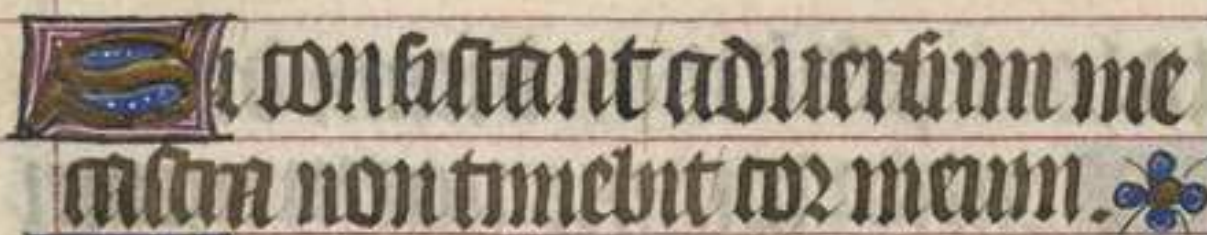 Si consistant aduersum me
castra non timebit cor meum.